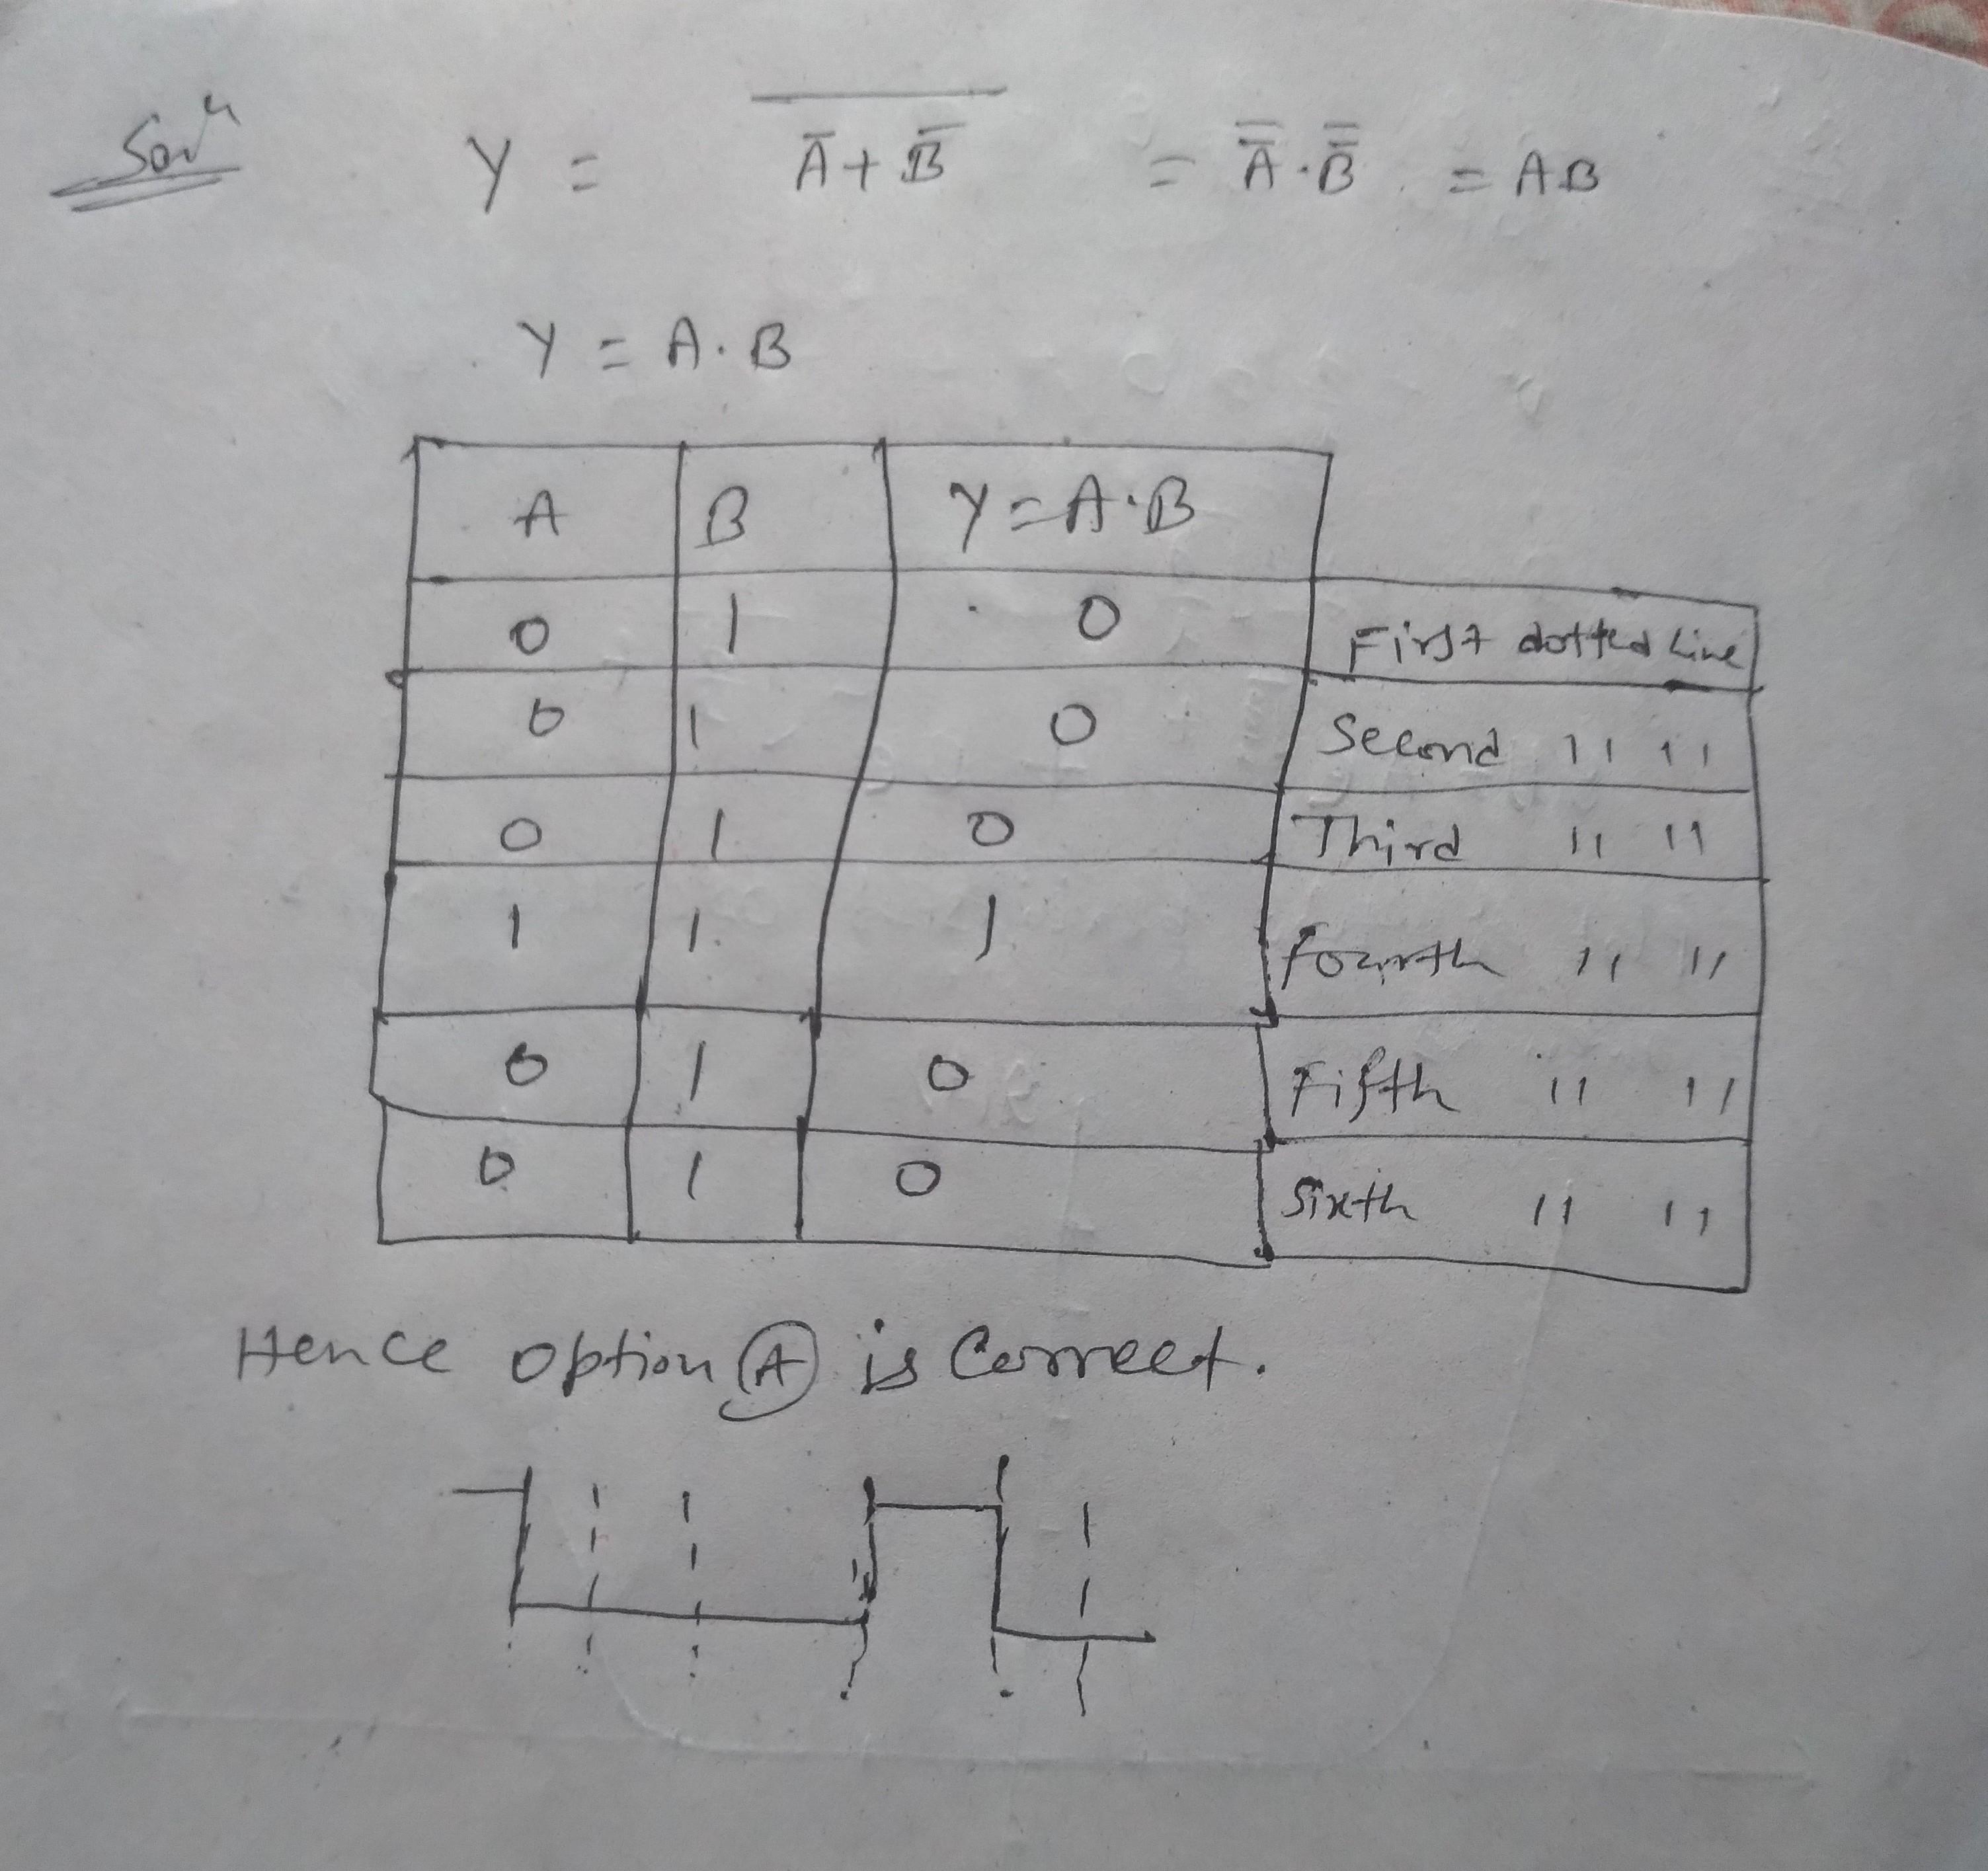 Solⁿ Y = \overline{Ā + B̄} = A̿ · B̿ = AB
Y = A · B
A B Y = A · B
0 1 0 First dotted line
0 1 0 Second 11 11
0 1 0 Third 11 11
1 1 1 fourth 11 11
0 1 0 Fifth 11 11
0 1 0 Sixth 11 11
Hence option (A) is Correct.